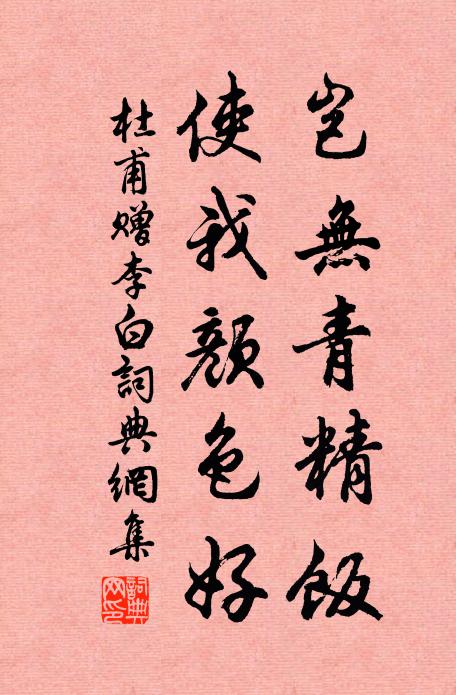 豈無青精飯
使我顏色好
杜甫贈李白詞典網集
詞典
网印